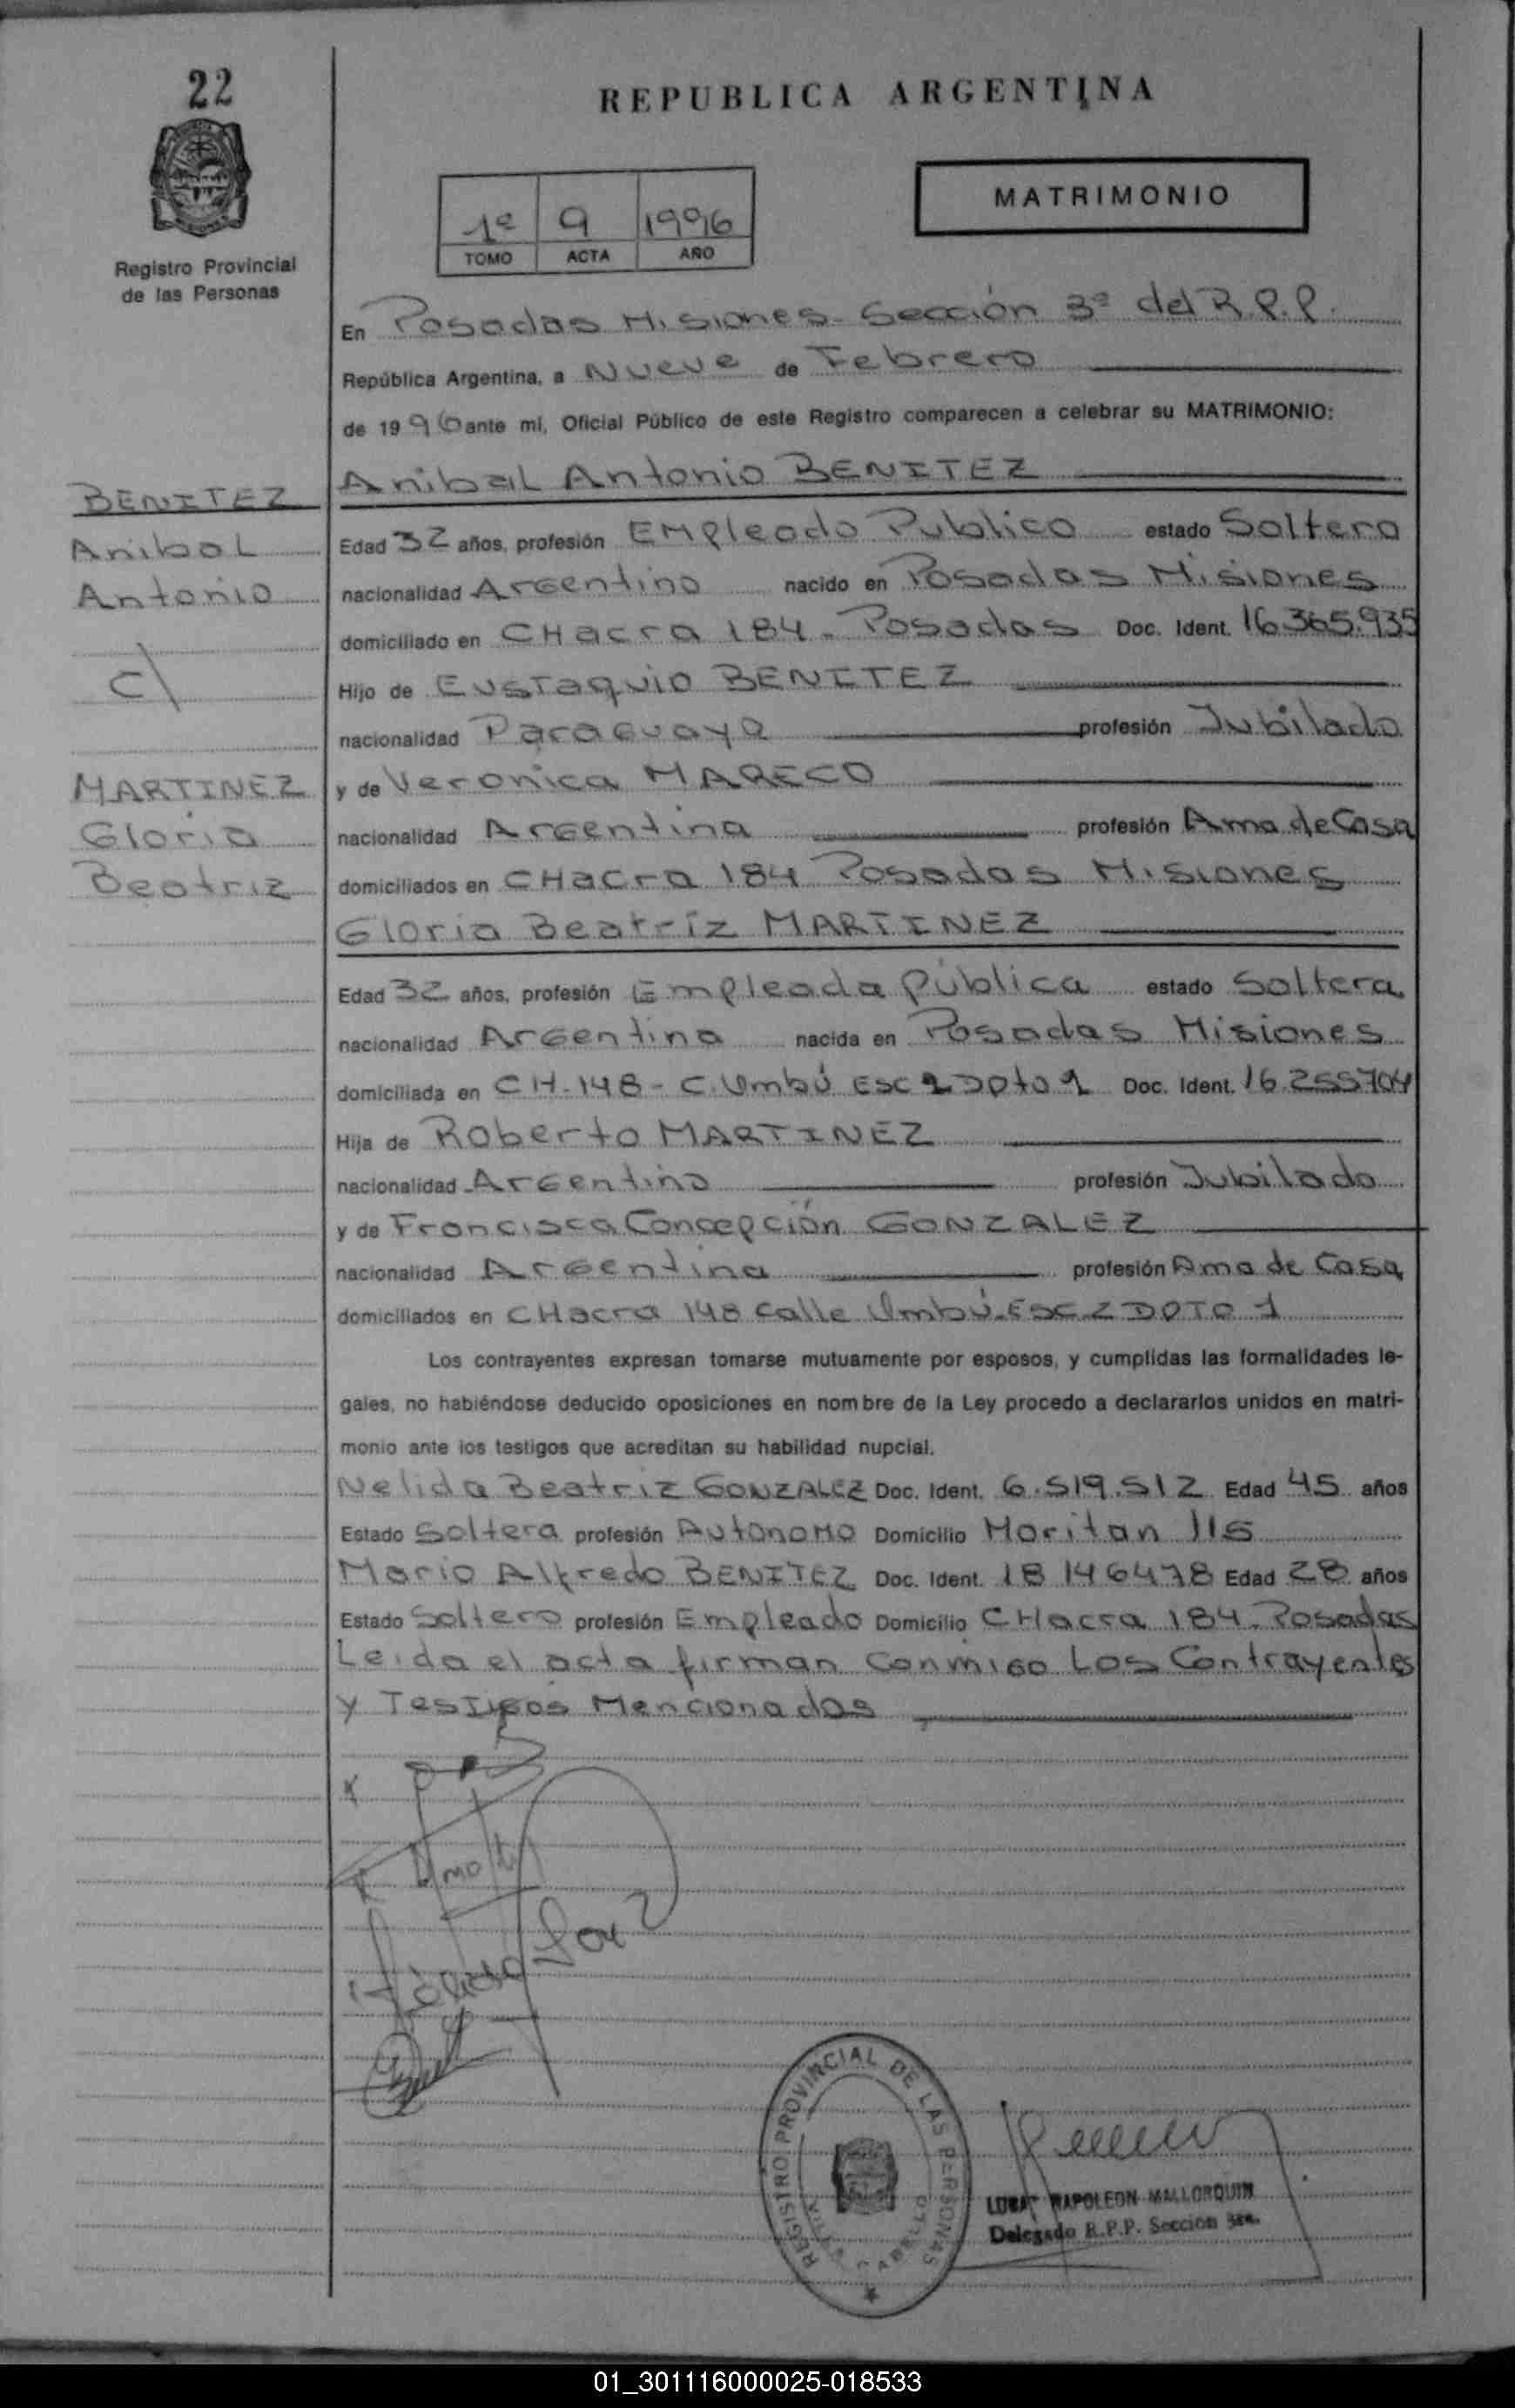 22
REPUBLICA ARGENTINA
Registro Provincial
de las Personas
1º 9 1996
TOMO ACTA AÑO
MATRIMONIO
En Posadas Misiones - Sección 3ª del R.P.P.
República Argentina, a Nueve de Febrero
de 1996 ante mí, Oficial Público de este Registro comparecen a celebrar su MATRIMONIO:
Anibal Antonio BENITEZ
BENITEZ
Anibal
Antonio
c/
MARTINEZ
Gloria
Beatriz
Edad 32 años, profesión Empleado Publico estado Soltero
nacionalidad Argentino nacido en Posadas Misiones
domiciliado en CHacra 184 - Posadas Doc. Ident. 16.365.935
Hijo de Eustaquio BENITEZ
nacionalidad Paraguaya profesión Jubilado
y de Veronica MARECO
nacionalidad Argentina profesión Ama de Casa
domiciliados en CHacra 184 Posadas Misiones
Gloria Beatríz MARTINEZ
Edad 32 años, profesión Empleada Pública estado Soltera
nacionalidad Argentina nacida en Posadas Misiones
domiciliada en CH-148 - C. Umbú ESC 2 DPto 1 Doc. Ident. 16.255704
Hija de Roberto MARTINEZ
nacionalidad Argentino profesión Jubilado
y de Francisca Concepción GONZALEZ
nacionalidad Argentina profesión Ama de Casa
domiciliados en CHacra 148 calle Umbú - ESC 2 DPTO 1
Los contrayentes expresan tomarse mutuamente por esposos, y cumplidas las formalidades le-
gales, no habiéndose deducido oposiciones en nombre de la Ley procedo a declararlos unidos en matri-
monio ante los testigos que acreditan su habilidad nupcial.
Nelida Beatriz GONZALEZ Doc. Ident. 6.519.512 Edad 45 años
Estado Soltera profesión Autonomo Domicilio Moritan 115
Mario Alfredo BENITEZ Doc. Ident. 18 146478 Edad 28 años
Estado Soltero profesión Empleado Domicilio CHacra 184 - Posadas
Leida el acta firman conmigo Los Contrayentes
y Testigos Mencionados
REGISTRO PROVINCIAL DE LAS PERSONAS
NAPOLEON MALLORQUIN
Delegado R.P.P. Sección 3ra.
01_301116000025-018533